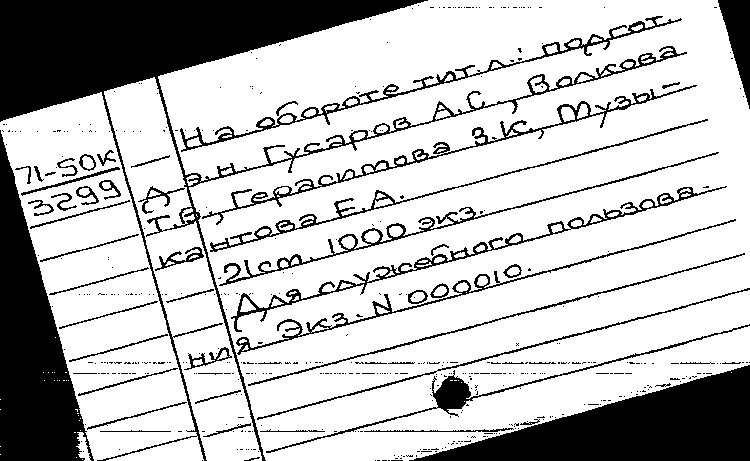 На обороте тит.л.: подгот.
71-50к
3299
Д э.н. Гусаров А.С., Волкова
Т.В., Герасимова З.К., Музы-
кантова Е.А.
21см. 1000 экз.
Для служебного пользова-
ния. Экз. N 000010.